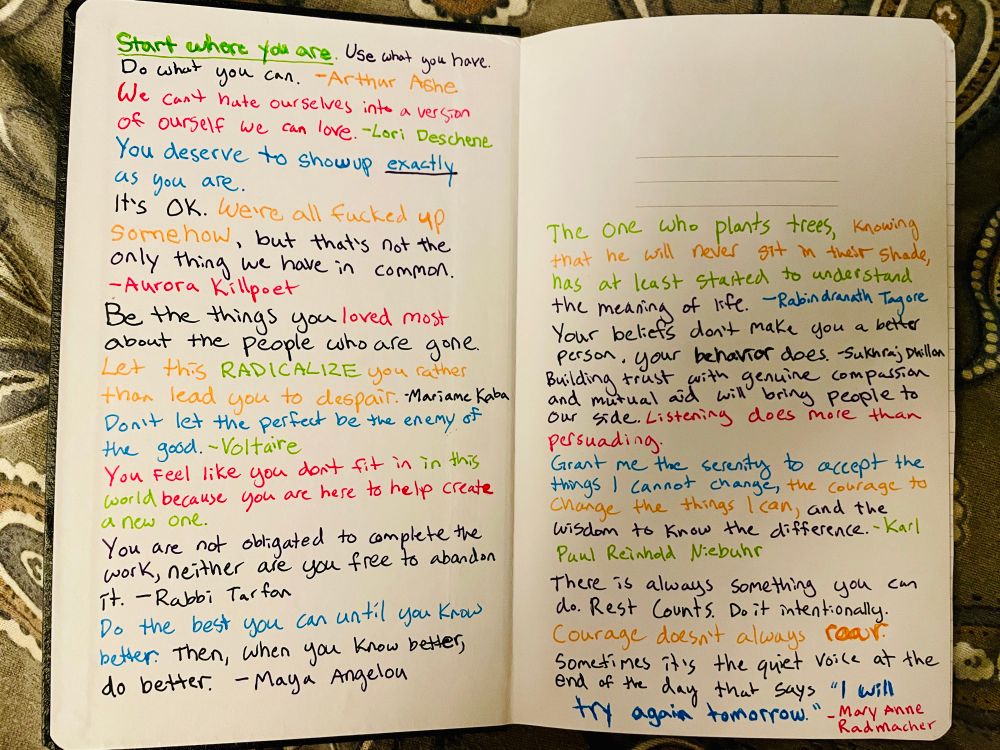 Start where you are. Use what you have.
Do what you can. -Arthur Ashe
We can't hate ourselves into a version
of ourself we can love. -Lori Deschene
You deserve to show up exactly
as you are.
It's OK. We're all fucked up
somehow, but that's not the
only thing we have in common.
-Aurora Killpoet
Be the things you loved most
about the people who are gone.
Let this RADICALIZE you rather
than lead you to despair. -Mariame Kaba
Don't let the perfect be the enemy of
the good. -Voltaire
You feel like you dont fit in in this
world because you are here to help create
a new one.
You are not obligated to complete the
work, neither are you free to abandon
it. -Rabbi Tarfon
Do the best you can until you know
better. Then, when you know better,
do better. -Maya Angelou
The one who plants trees, knowing
that he will never sit in their shade,
has at least started to understand
the meaning of life. -Rabindranath Tagore
Your beliefs don't make you a better
person, your behavior does. -Sukhraj Dhillon
Building trust with genuine compassion
and mutual aid will bring people to
our side. Listening does more than
persuading.
Grant me the serenity to accept the
things I cannot change, the courage to
change the things I can, and the
wisdom to know the difference. -Karl
Paul Reinhold Niebuhr
There is always something you can
do. Rest Counts. Do it intentionally.
Courage doesn't always roar.
Sometimes it's the quiet voice at the
end of the day that says "I will
try again tomorrow." -Mary Anne
Radmacher